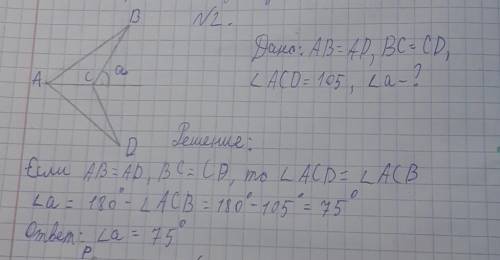 N2.
B
Дано: AB=AD, BC=CD,
A C a
∠ACD=105, ∠a-?
D
Решение:
Если AB=AD, BC=CD, то ∠ACD=∠ACB
∠a=180°-∠ACB=180°-105°=75°
Ответ: ∠a=75°